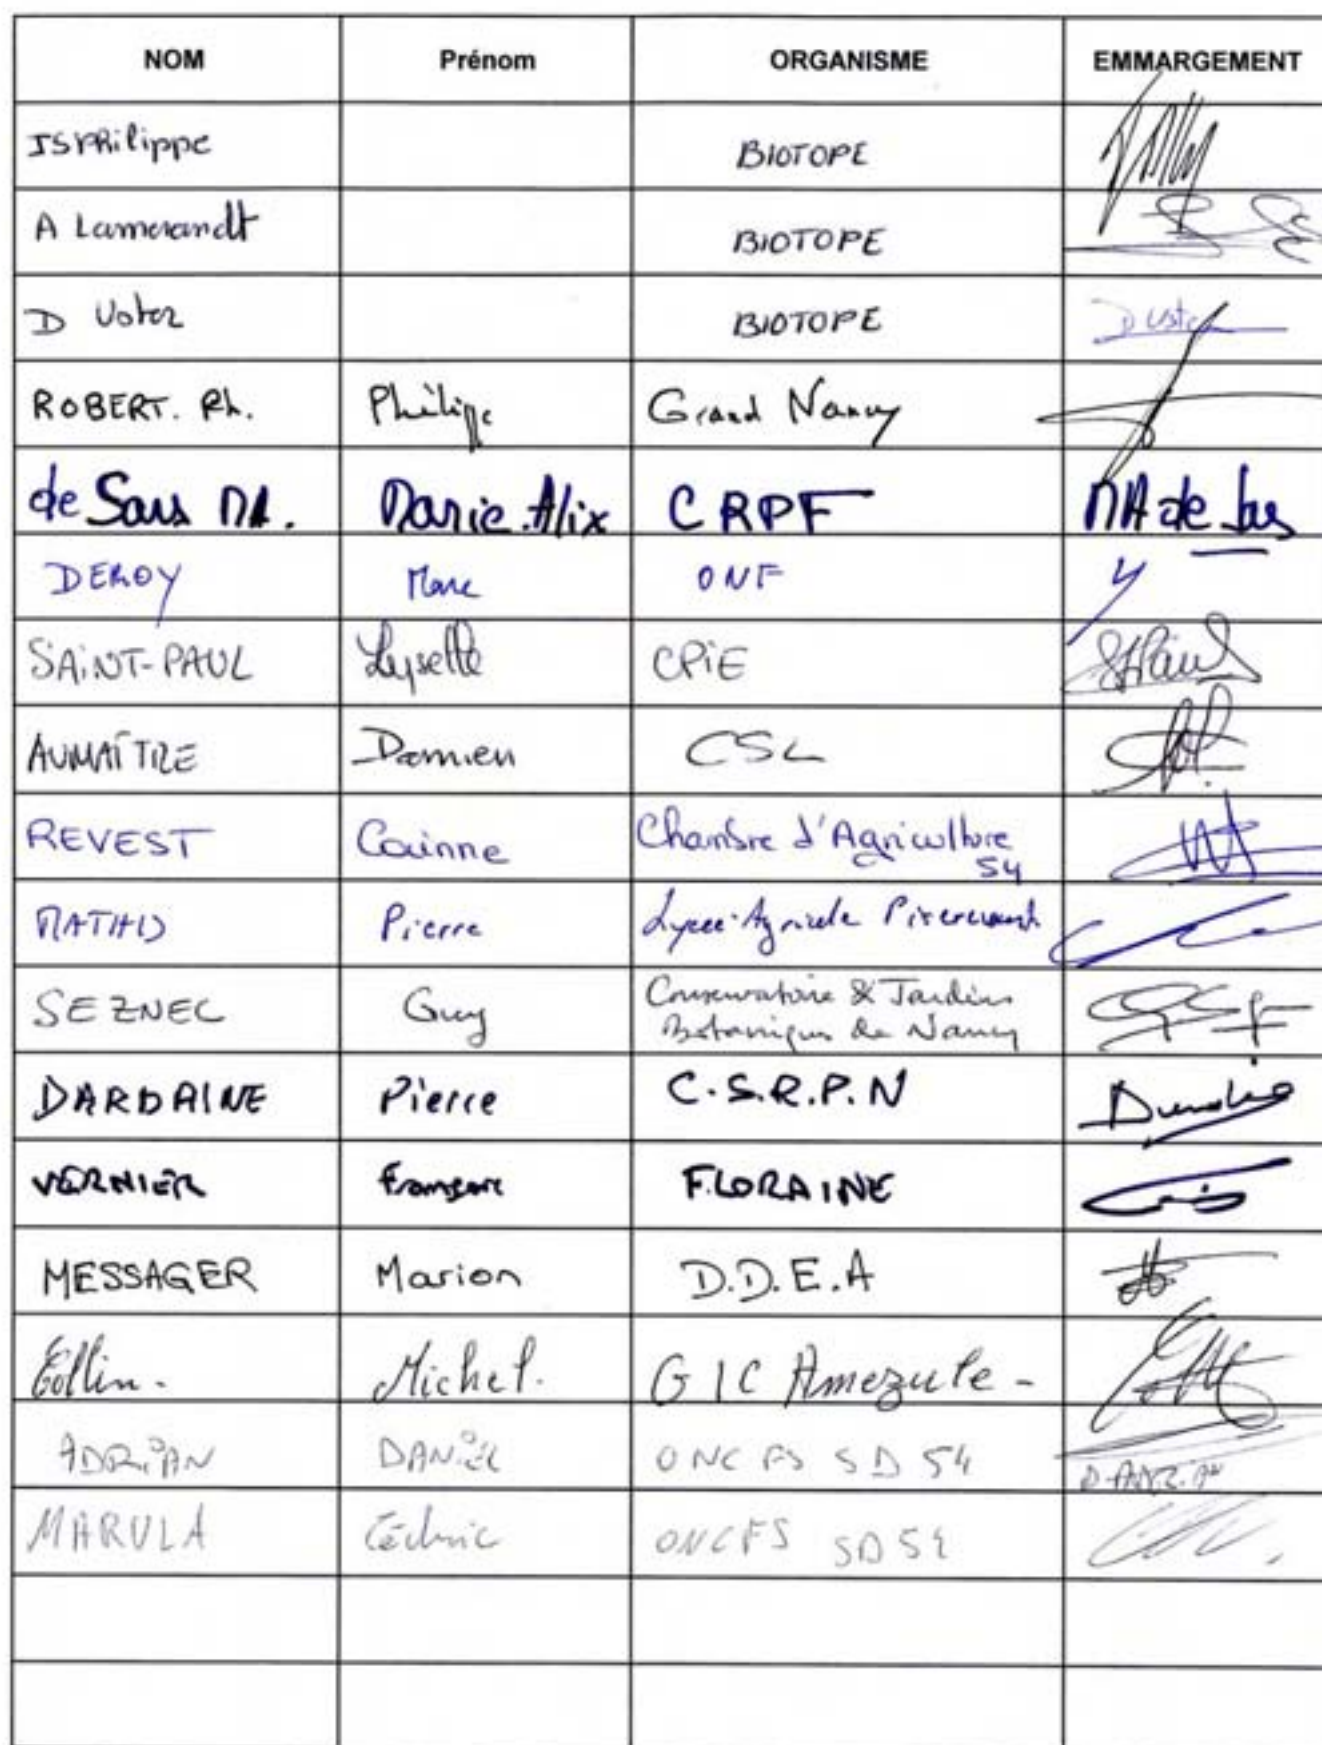 NOM Prénom ORGANISME EMMARGEMENT
JSPhilippe BIOTOPE
A Lamerandt BIOTOPE
D Voter BIOTOPE
ROBERT. Ph. Philippe Grand Nancy
de Sars MA. Marie.Alix CRPF MA de Sars
DEROY Marc ONF
SAINT-PAUL Lysette CPiE StPaul
AUMAÎTRE Damien CSL
REVEST Corinne Chambre d'Agriculture
54
MATHIS Pierre Lycée Agricole Pixerecourt
SEZNEC Guy Conservatoire & Jardins
Botaniques de Nancy
DARDAINE Pierre C.S.R.P.N
VERNIER François FLORAINE
MESSAGER Marion D.D.E.A
Collin. Michel. GIC Amezule -
ADRiAN DANiEL ONCFS SD 54 D. ADRiAN
MARULA Cédric ONCFS SD 54